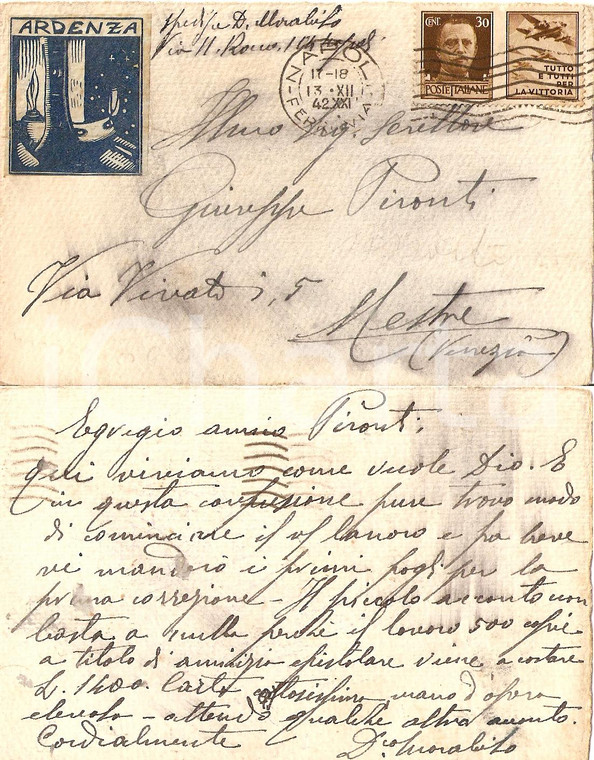 ARDENZA
Spedisce D. Morabito
Via N. Rocco, Napoli
NAPOLI
17-18
13 XII
42 XXI
FERROVIA
CENT. 30
POSTE ITALIANE
TUTTO
E TUTTI
PER
LA VITTORIA
Illmo Sig. Scrittore
Giuseppe Pironti
Via Vivaldi, 5
Mestre
(Venezia)
Egregio amico Pironti,
qui viviamo come vuole Dio. E
in questa confusione pure trovo modo
di cominciare il vs/ lavoro e fra breve
vi manderò i primi fogli per la
prima correzione - Il piccolo acconto non
basta a nulla perchè il lavoro 500 copie
a titolo di amicizia epistolare viene a costare
L. 1400. Carta costosissima mano d'opera
elevata - attendo qualche altro acconto.
Cordialmente
D. Morabito
iCharta